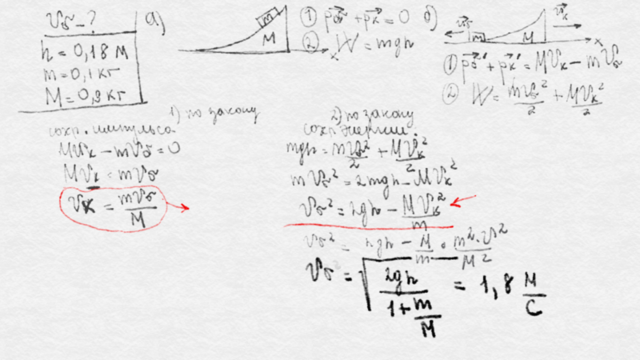 v_б - ?
h = 0,18 м
m = 0,1 кг
M = 0,8 кг
а)
m
M
x
① p_б + p_к = 0
② W = mgh
б)
v_б
v_к
M
x
① p_б' + p_к' = Mv_к - mv_б
② W = mv_б²/2 + Mv_к²/2
1) по закону
сохр. импульса
Mv_к - mv_б = 0
Mv_к = mv_б
v_к = mv_б/M
2) по закону
сохр энергии
mgh = mv_б²/2 + Mv_к²/2
mv_б² = 2mgh - Mv_к²
v_б² = 2gh - Mv_к²/m
v_б² = 2gh - M/m · m²·v²/M²
v_б = √(2gh/(1+m/M)) = 1,8 м/с